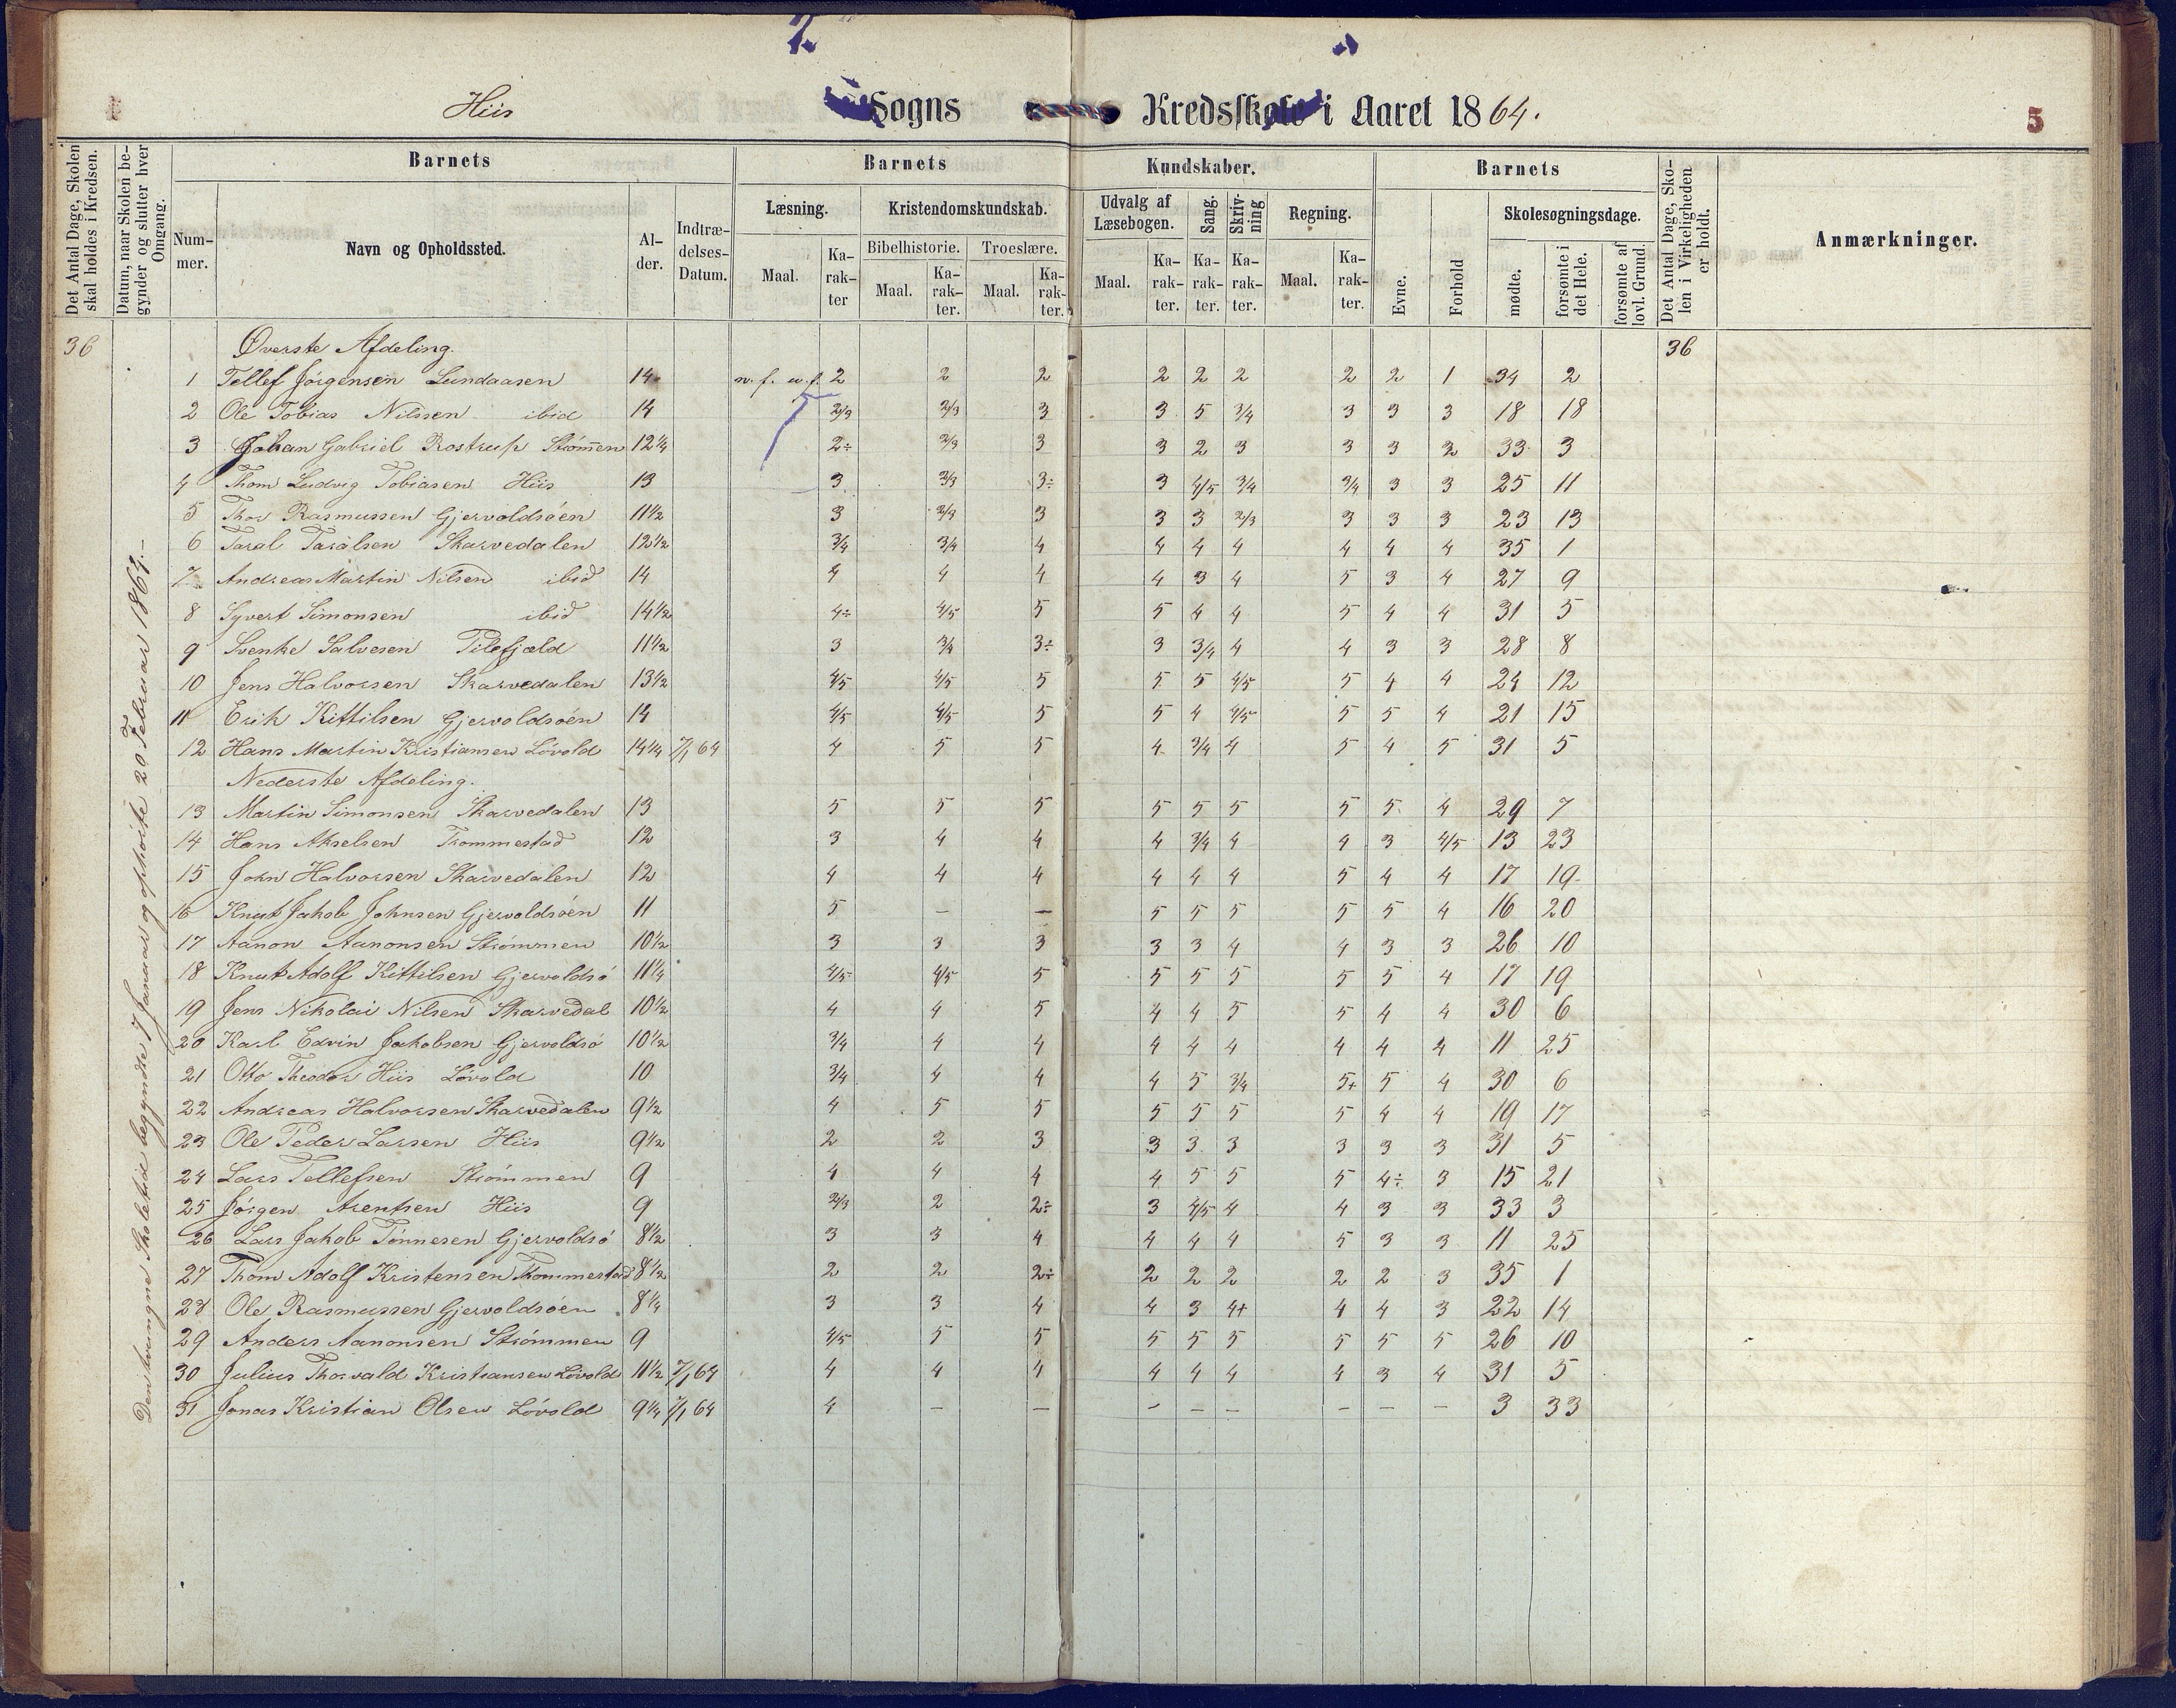 7.
Hiis Sogns Kredsskole i Aaret 1864. 5
Det Antal Dage, Skolen skal holdes i Kredsen.
Datum, naar Skolen begynder og slutter hver Omgang.
Barnets Barnets Kundskaber. Barnets
Nummer. Navn og Opholdssted. Alder. Indtrædelses-Datum.
Læsning. Kristendomskundskab. Udvalg af Læsebogen. Sang. Skrivning Regning. Evne. Forhold Skolesøgningsdage.
Bibelhistorie. Troeslære.
Maal. Karakter Maal. Karakter. Maal. Karakter. Maal. Karakter. Karakter. Karakter. Maal. Karakter. mødte. forsømte i det Hele. forsømte af lovl. Grund.
Det Antal Dage, Skolen i Virkeligheden er holdt.
Anmærkninger.
36 Øverste Afdeling. 36
Den tvungne Skoletid begyndte 7 Januar og ophørte 20 Februar 1864.-
1 Tellef Jörgensen Lundaasen 14 n. f. u. f. 2 2 2 2 2 2 2 2 1 34 2
2 Ole Tobias Nilssen ibid 14 2/3 2/3 3 3 5 3/4 3 3 3 18 18
3 Johan Gabriel Rostrup Strömmen 12 1/4 2÷ 2/3 3 3 2 3 3 3 2 33 3
4 Thom Ludvig Tobiasen Hiis 13 3 3/3 3÷ 3 4/5 3/4 3/4 3 3 25 11
5 Thor Rasmussen Gjervoldsöen 11 1/2 3 2/3 3 3 3 2/3 3 3 3 23 13
6 Taral Taralsen Skarvedalen 12 1/2 3/4 3/4 4 4 4 4 4 4 4 35 1
7 Andreas Martin Nilsen ibid 14 4 4 4 4 3 4 5 3 4 27 9
8 Syvert Simonsen ibid 14 1/2 4÷ 4/5 5 5 4 4 5 4 4 31 5
9 Svenke Salvesen Pilefjæld 11 1/2 3 3/4 3÷ 3 3/4 4 4 3 3 28 8
10 Jens Halvorsen Skarvedalen 13 1/2 4/5 4/5 5 5 5 4/5 5 4 4 24 12
11 Erik Kittilsen Gjervoldsöen 14 4/5 4/5 5 5 4 4/5 5 5 4 21 15
12 Hans Martin Kristiansen Lövold 14 1/4 7/1 64 4 5 5 4 3/4 4 5 4 5 31 5
Nederste Afdeling.
13 Martin Simonsen Skarvedalen 13 5 5 5 5 5 5 5 5 4 29 7
14 Hans Akselsen Trommestad 12 3 4 4 4 3/4 4 4 3 4/5 13 23
15 John Halvorsen Skarvedalen 12 4 4 4 4 4 4 5 4 4 17 19
16 Knut Jakob Johnsen Gjervoldsöen 11 5 — — 5 5 5 5 5 4 16 20
17 Aanon Aanonsen Strömmen 10 1/2 3 3 3 3 3 4 4 3 3 26 10
18 Knut Adolf Kittilsen Gjervoldsö 11 1/4 4/5 4/5 5 5 5 5 5 5 4 17 19
19 Jens Nikolai Nilsen Skarvedal 10 1/2 4 4 5 4 4 5 5 4 4 30 6
20 Karl Edvin Jakobsen Gjervoldsö 10 1/2 3/4 4 4 4 4 4 4 4 4 11 25
21 Otto Theodor Hiis Lövold 10 3/4 4 4 4 5 3/4 5+ 5 4 30 6
22 Andreas Halvorsen Skarvedalen 9 1/2 4 5 5 5 5 5 5 4 4 19 17
23 Ole Peder Larsen Hiis 9 1/2 2 2 3 3 3 3 3 3 3 31 5
24 Lars Tellefsen Strömmen 9 4 4 4 4 5 5 5 4÷ 3 15 21
25 Jörgen Arentsen Hiis 9 2/3 2 2÷ 3 4/5 4 4 3 3 33 3
26 Lars Jakob Tönnesen Gjervoldsö 8 1/2 3 3 4 4 4 4 5 3 3 11 25
27 Thom Adolf Kristensen Trommestad 8 1/2 2 2 2÷ 2 2 2 2 2 3 35 1
28 Ole Rasmussen Gjervoldsöen 8 1/4 3 3 4 4 3 4+ 4 4 3 22 14
29 Anders Aanonsen Strömmen 9 4/5 5 5 5 5 5 5 5 5 26 10
30 Julius Thorvald Kristiansen Lövold 11 1/2 7/1 64 4 4 4 4 4 4 4 3 4 31 5
31 Jonas Kristian Olsen Lövold 9 1/4 7/1 64 4 — — — — — — — — 3 33